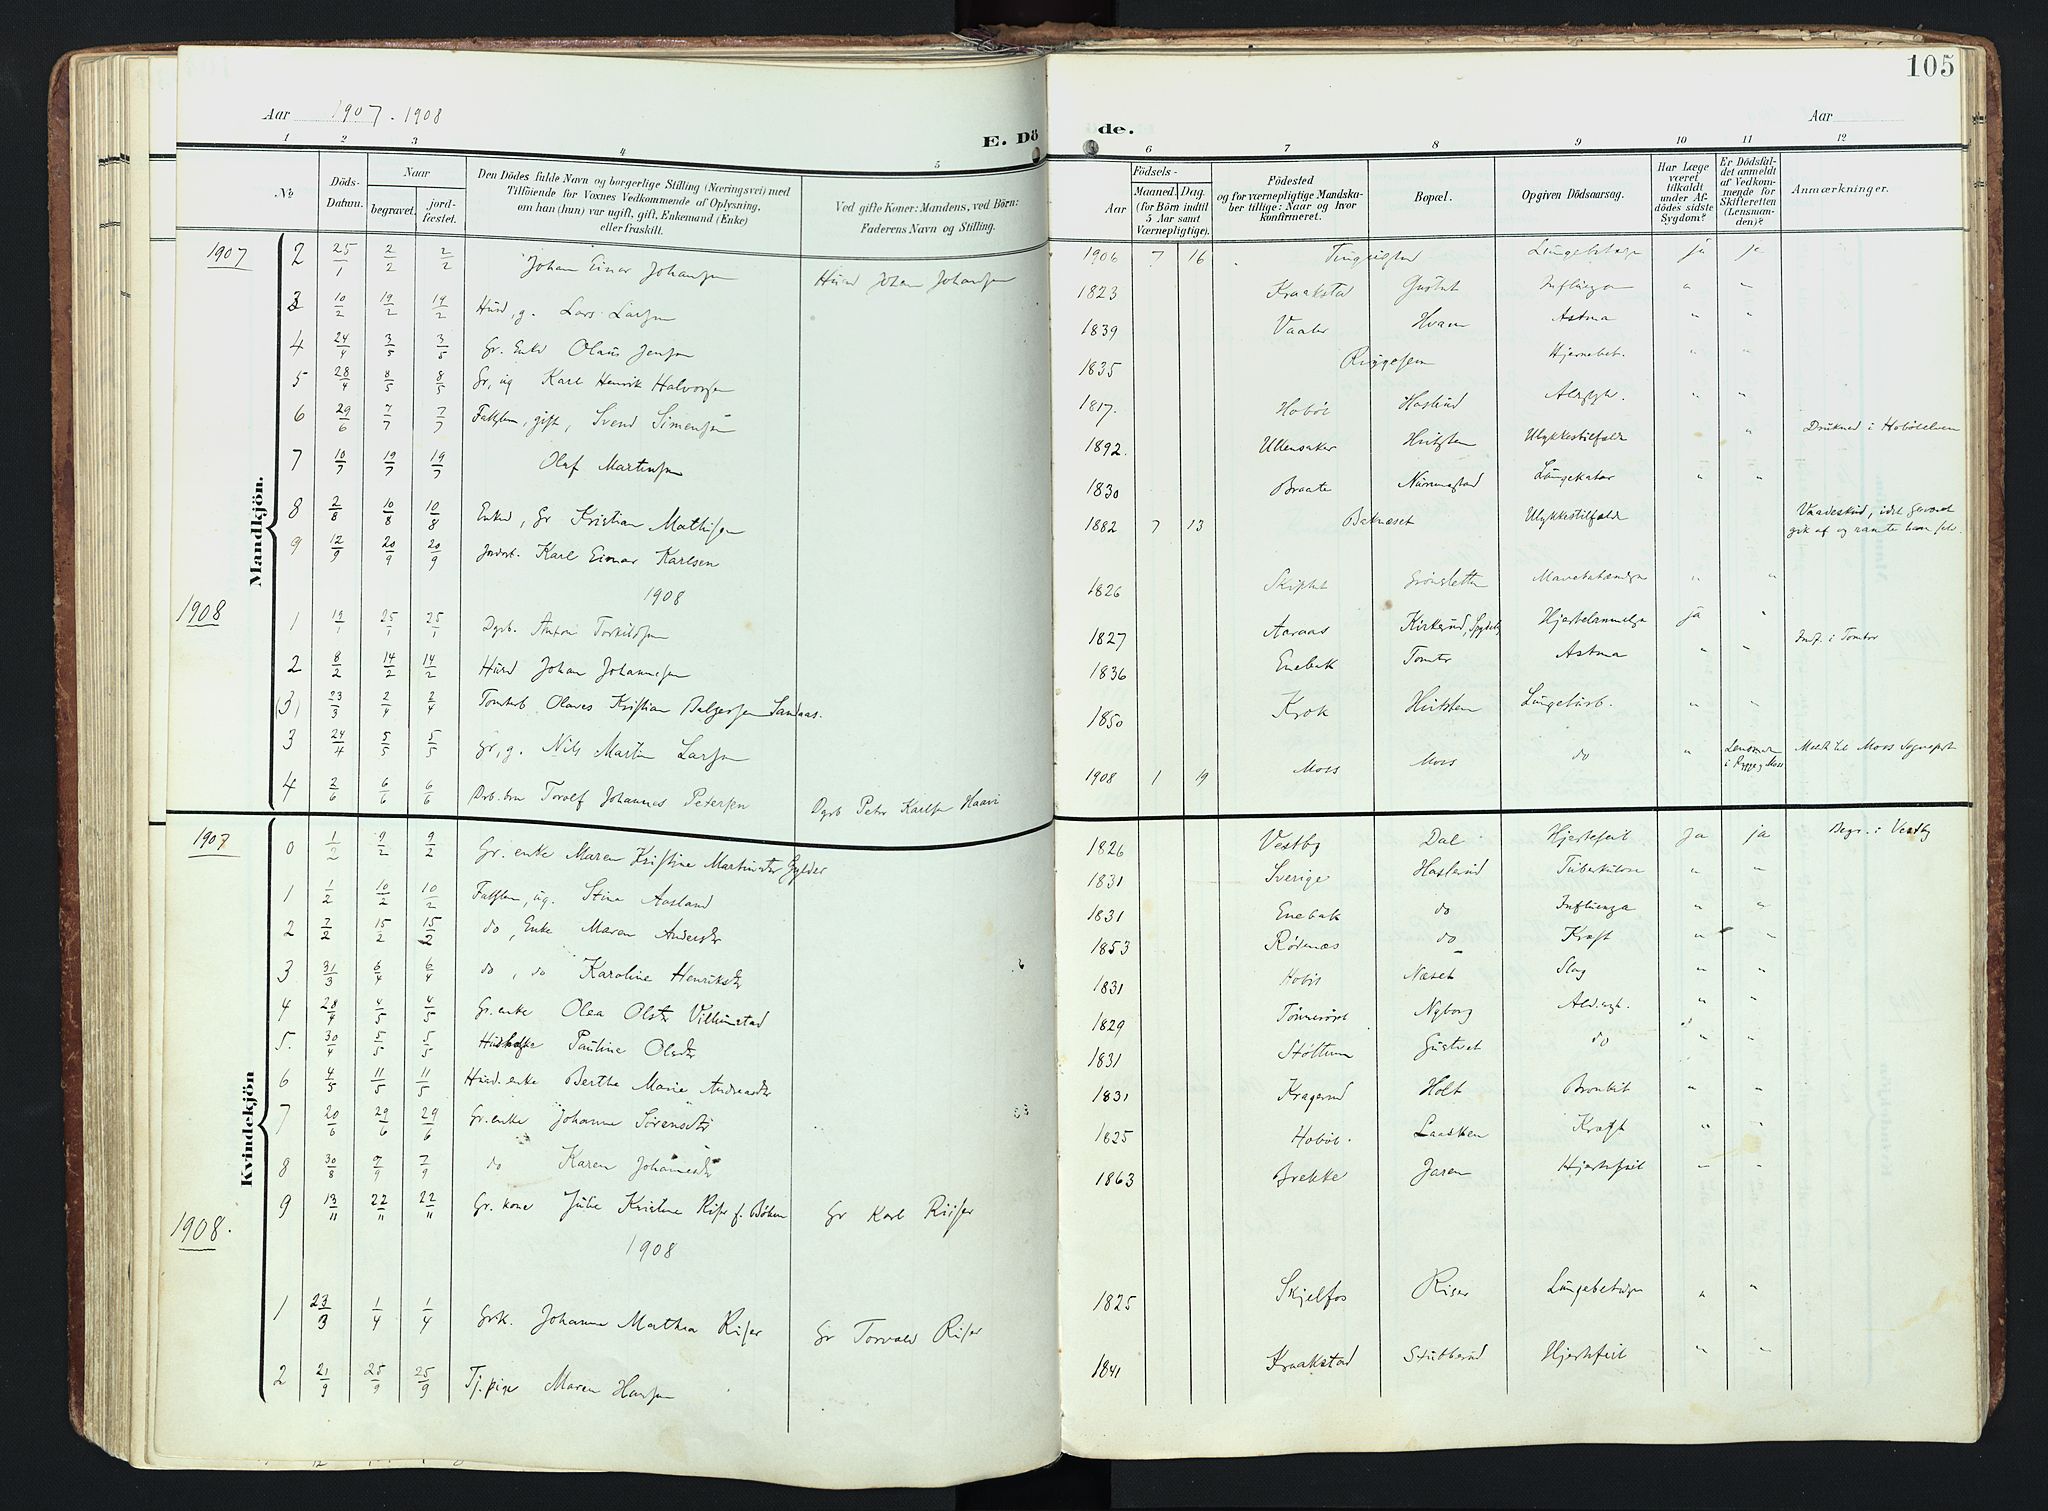 105
Aar 1907-1908
Aar
E. Döde.
1 2 3 4 5 6 7 8 9 10 11 12
№
Döds-Datum.
Naar
begravet.
jord-fæstet.
Den Dödes fulde Navn og borgerlige Stilling (Næringsvei) med
Tilföiende for Voxnes Vedkommende af Oplysning,
om han (hun) var ugift, gift, Enkemand (Enke)
eller fraskilt.
Ved gifte Koner: Mandens, ved Börn:
Faderens Navn og Stilling.
Födsels-
Aar
Maaned. Dag.
(for Börn indtil
5 Aar samt
Værnepligtige).
Födested
og for værnepligtige Mandska-
ber tillige: Naar og hvor
konfirmeret.
Bopæl.
Opgiven Dödsaarsag.
Har Læge
været
tilkaldt
under Af-
dödes sidste
Sygdom?
Er Dödsfal-
det anmeldt
af Vedkom-
mende for
Skifteretten
(Lensman-
den)?
Anmærkninger.
Mandkjön.
1907
2 25/1 2/2 2/2 Johan Einar Johansen Husmd Johan Johansen 1906 7 16 ja ja
3 10/2 19/2 19/2 Husmd, g. Lars Larsen 1823 Kraakstad Gustut Influenza " "
4 24/4 3/5 3/5 Gr. Enkem Olaus Jensen 1839 Vaaler Hvam Astma " "
5 28/4 8/5 8/5 Gr, ug Karl Henrik Halvorsen 1835 Hjernebet. " "
6 29/6 7/7 7/7 Fattiglem, gift, Svend Simensen 1817. Hobøl Haslund " "
7 10/7 19/7 19/7 Olaf Martinsen 1892. Ullensaker Hvitsten Ulykkestilfælde " Drukned i Hobølelven
8 2/8 10/8 10/8 Enkemd, Gr Kristian Mathisen 1830 Braate Lungekatar " "
9 12/9 20/9 20/9 Jordarb. Karl Einar Karlsen 1882 7 13 Baknæset Ulykkestilfælde Vaadeskud, idet geværet
gik af og ramte ham selv.
1908
1908
1 19/1 25/1 25/1 Dgrb. Anton Torkildsen 1826 Skiptvet " "
2 8/2 14/2 14/2 Husmd Johan Johannesen 1827 Aaraas Kirkerud, Spydeb. Hjertelammelse ja " Jordf. i Tomter
(3) 23/3 2/4 2/4 Tomtarb Olaves Kristian Balzersen Sandaas. 1836 Enebak Tomter Astma " "
3 24/4 5/5 5/5 Gr, g. Nils Martin Larsen 1850 Krok Hvitsten " "
4 2/6 6/6 6/6 Torolf Johannes Petersen Dgrb Peter Karlsen Haavi 1908 1 19 Moss Moss do " Lensmanden
i Rygge og Moss Meldt til Moss Sognepst
Kvindekjön
1907
0 1/2 9/2 9/2 Gr. enke Maren Kristine Martinsdtr Gylder 1826 Vestby Dal Hjertefeil ja ja Begr. i Vestby
1 1/2 10/2 10/2 Fattiglem, ug. Stina Aasland 1831 Sverige Haslerud Tuberkulose " "
2 7/2 15/2 15/2 do, Enke Maren Andersdtr 1831 Enebak do Influenza " "
3 31/3 6/4 6/4 do, do Karoline Henriksdtr 1853 Rødenæs do Kræft " "
4 28/4 4/5 4/5 Gr. enke Olea Olsdtr Villumstad 1831 Hobøl Næset Slag " "
5. 30/4 5/5 5/5 Pauline Olsdtr 1829 Nyborg " "
6 4/5 11/5 11/5 Husmd. enke Berthe Marie Andreasdtr 1831 Støttum Gustvet do " "
7 20/6 29/6 29/6 Gr. enke Johanne Sørensdtr 1831 Kragerud Holt Bronkit " "
8 30/8 7/9 7/9 do Karen Johannesdtr 1825 Hobøl. Laasken Kræft " "
9 13/11 22/11 22/11 Gr. kone Julie Kristine Riser f. Bøhm Gr Karl Riiser 1863 Brekke Jaren Hjertefeil " "
1908.
1908
1 23/3 1/4 1/4 Grk. Johanne Mathea Riser Gr Torvald Riser 1825 Skjelfos Riser Lungebetændelse " "
2 21/9 25/9 25/9 Tj. pige Maren Hansen 1841 Kraakstad Stubberud Hjertefeil " "